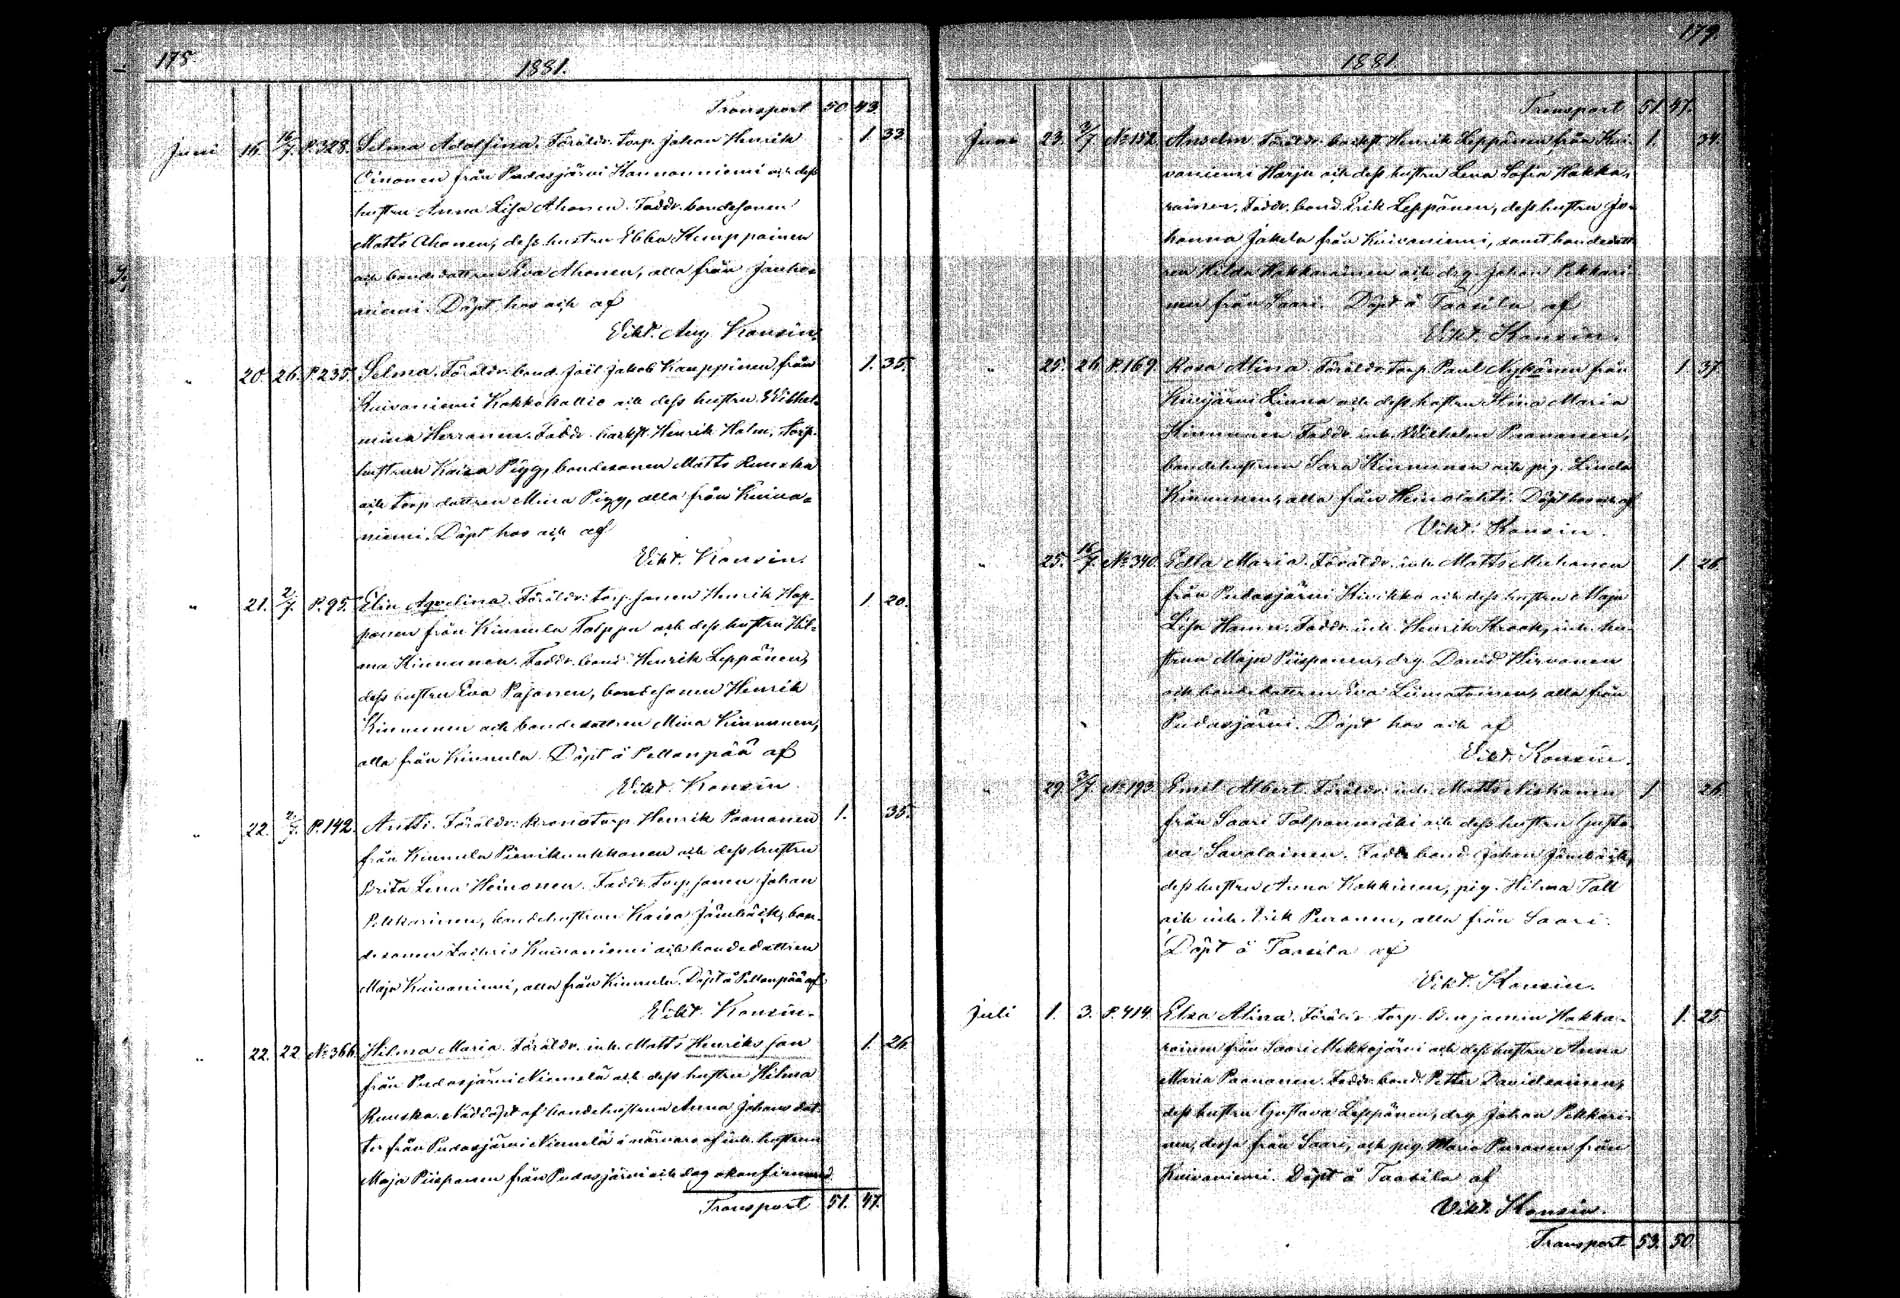 178
1881.
Transport 50 43.
Juni 16. 16/7. P. 328. Selma Adolfina. Föräldr. torp. Johan Henrik 1. 33
Oinonen från Pudasjärvi Kannonniemi och dess
hustru Anna Lisa Ahonen. Faddr. bondesonen
Matts Ahonen, dess hustru Ebba Kumppainen
och bondedottren Eva Ahonen, alla från
niemi. Döpt hos och af
Vikt. Aug. Konsin.
" 20. 26. P. 235. Selma. Föräldr. bond. Joel Jakob Kauppinen från 1. 35.
Kuivaniemi Kokkokallio och dess hustru Wilhel-
mina Herranen. Faddr. backst. Henrik Holm, torp.
hustrun Kaisa Pigg, bondesonen Matts Ruuska
och torp.dottren Mina Pigg, alla från Kuiva-
niemi. Döpt hos och af
Vikt. Konsin.
" 21. 2/7. P. 95. Elin Agvelina. Föräldr. torp.sonen Henrik Hap-
1. 20.
ponen från Kinnula Talppa och dess hustru Hil-
ma Kinnunen. Faddr. bond. Henrik Leppänen,
dess hustru Eva Pajanen, bondesonen Henrik
Kinnunen och bondedottren Mina Kinnunen,
alla från Kinnula. Döpt å Pellonpää af
Vikt. Konsin
" 22. 2/7. P. 142. Antti. Föräldr. kronotorp. Henrik Paananen 1. 35.
från Kinnula Pienikunkkonen och dess hustru
Brita Lena Heinonen. Faddr. torp.sonen Johan
Pekkarinen, bondehustrun Kaisa Jämbäck, bon-
desonen Zachris Kuivaniemi och bondedottren
Maja Kuivaniemi, alla från Kinnula. Döpt å Pellonpää af
Vikt. Konsin.
" 22. 22 No 366. Hilma Maria. Föräldr. inh. Matts Henriksson 1. 26.
från Pudasjärvi Niemelä och dess hustru Hilma
Ruuska. Nöddöpt af bondehustrun Anna Johansdot-
ter från Pudasjärvi Niemelä i närvaro af inh. hustrun
Maja Piispanen från Pudasjärvi och dog okonfirmerad
Transport 51. 47.
179.
1881
Transport 51 47.
Juni 23. 3/7 No 152. Anselm. Föräldr. backst. Henrik Leppänen från Kui- 1. 34.
vaniemi Harju och dess hustru Lena Sofia Hakka-
rainen. Faddr. bond. Erik Leppänen, dess hustru Jo-
hanna Jakela från Kuivaniemi, samt bondedott-
ren Hilda Hakkarainen och drg. Johan Pekkari-
nen från Saari. Döpt å Taasila af
Vikt. Konsin.
" 25. 26 P. 169. Rosa Alina. Föräldr. torp. Paul Nykänen från 1 37
Kuusijärvi Linna och dess hustru Stina Maria
Kinnunen. Faddr. inh. Wilhelm Paananen,
bondehustrun Sara Kinnunen och pig. Linda
Kinnunen, alla från Heinolahti. Döpt hos och af
Vikt. Konsin.
" 25. 16/7. No 340. Edla Maria. Föräldr. inh. Matts Muhonen 1. 26
från Pudasjärvi Kivikko och dess hustru Maja
Lisa Hamn. Faddr. inh. Henrik Krook, inh. hu-
strun Maja Piispanen, drg. David Hirvonen
och bondedottren Eva Liimatainen, alla från
Pudasjärvi. Döpt hos och af
Vikt. Konsin.
" 29. 3/7 No 193. Emil Albert. Föräldr. inh. Matts Niskanen 1 26
från Saari Talpanmäki och dess hustru Gusta-
va Savolainen. Faddr. bond. Johan Jämbäck,
dess hustru Anna Kakkinen, pig. Hilma Tall
och inh. Erik Puranen, alla från Saari.
Döpt å Taasila af
Vikt. Konsin.
Juli 1. 3. P. 414. Elsa Alina. Föräldr. torp. Benjamin Hakka- 1. 25
rainen från Saari Mekkojärvi och dess hustru Anna
Maria Paananen. Faddr. bond. Petter Davidainen,
dess hustru Gustava Leppänen, drg. Johan Pekkari-
nen, dessa från Saari, och pig. Maria Puranen från
Kuivaniemi. Döpt å Taasila af
Vikt. Konsin.
Transport 53. 50